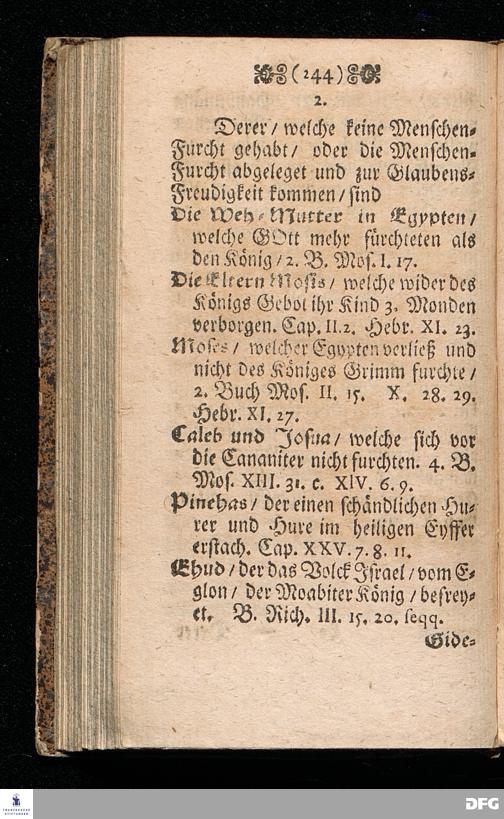 (244)
2.
Derer / welche keine Menschen-
Furcht gehabt / oder die Menschen-
Furcht abgeleget und zur Glaubens-
Freudigkeit kommen / sind
Die Weh-Mutter in Egypten /
welche GOtt mehr fürchteten als
den König / 2. B. Mos. I. 17.
Die Eltern Mosis / welche wider des
Königs Gebot ihr Kind 3. Monden
verborgen. Cap. II. 2. Hebr. XI. 23.
Moses / welcher Egypten verließ und
nicht des Königes Grimm furchte /
2. Buch Mos. II. 15. X. 28. 29.
Hebr. XI. 27.
Caleb und Josua / welche sich vor
die Cananiter nicht furchten. 4. B.
Mos. XIII. 31. c. XIV. 6. 9.
Pinehas / der einen schändlichen Hu-
rer und Hure im heiligen Eyffer
erstach. Cap. XXV. 7. 8. 11.
Ehud / der das Volck Israel / vom E-
glon / der Moabiter König / befrey-
et. B. Rich. III. 15. 20. seqq.
Gide-
DFG